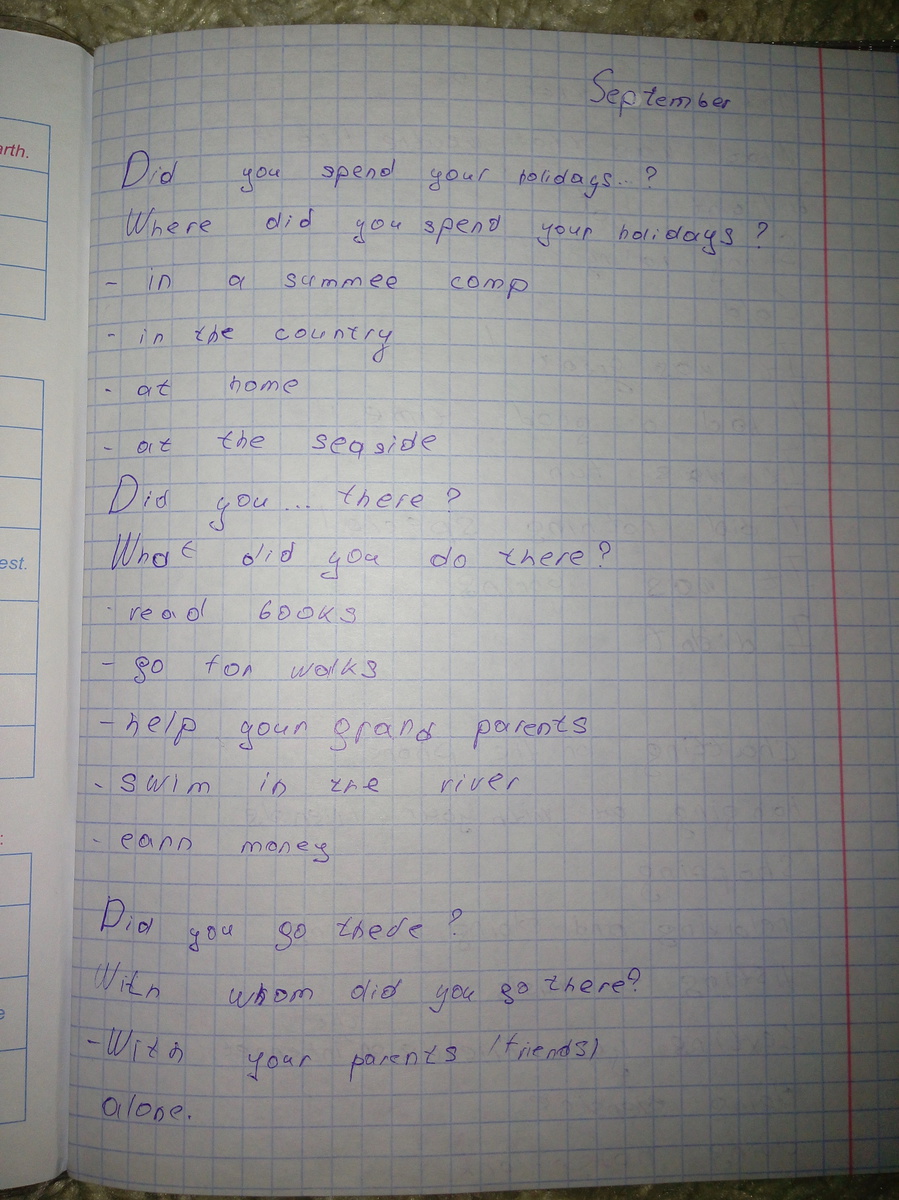 September
arth.
Did you spend your holidays...?
Where did you spend your holidays?
- in a summee comp
- in the country
- at home
- at the seaside
Did you... there?
What did you do there?
est.
- read books
- go for walks
- help your grand parents
- swim in the river
- earn money
:
Did you go thede?
With whom did you go there?
e
- With your parents (friends)
alone.